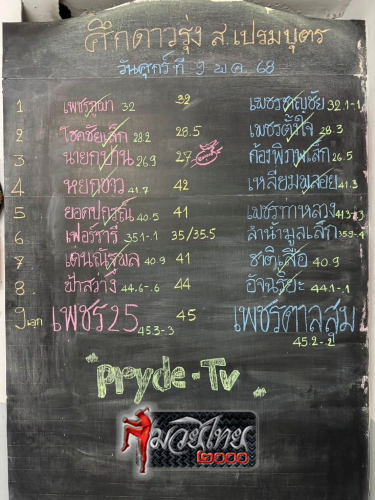 ศึกดาวรุ่ง ส.เปรมบุตร
วันศุกร์ ที่ 9 พ.ค. 68
1 เพชรภูผา 32 32 เพชรชาญชัย 32.1-1
2 โชคชัยเล็ก 28.2 28.5 เพชรตั้งใจ 28.3
3 26.9 27 ก้องพิภพเล็ก 26.5
4 หยกขาว 41.7 42 เหลี่ยมพลอย 41.3
5 40.5 41
6 เฟอร์รารี่ 35.1-.1 35/35.5 ลำน้ำมูลเล็ก
7 40.9 41 ชาติเสือ 40.9
8 ฟ้าสว่าง 44.6-.6 44 อัจฉริยะ 44.1-1
9 เอก เพชร25 45.3-3 45
45.2-2
"Pryde-Tv"
มวยไทย
๒๐๐๐